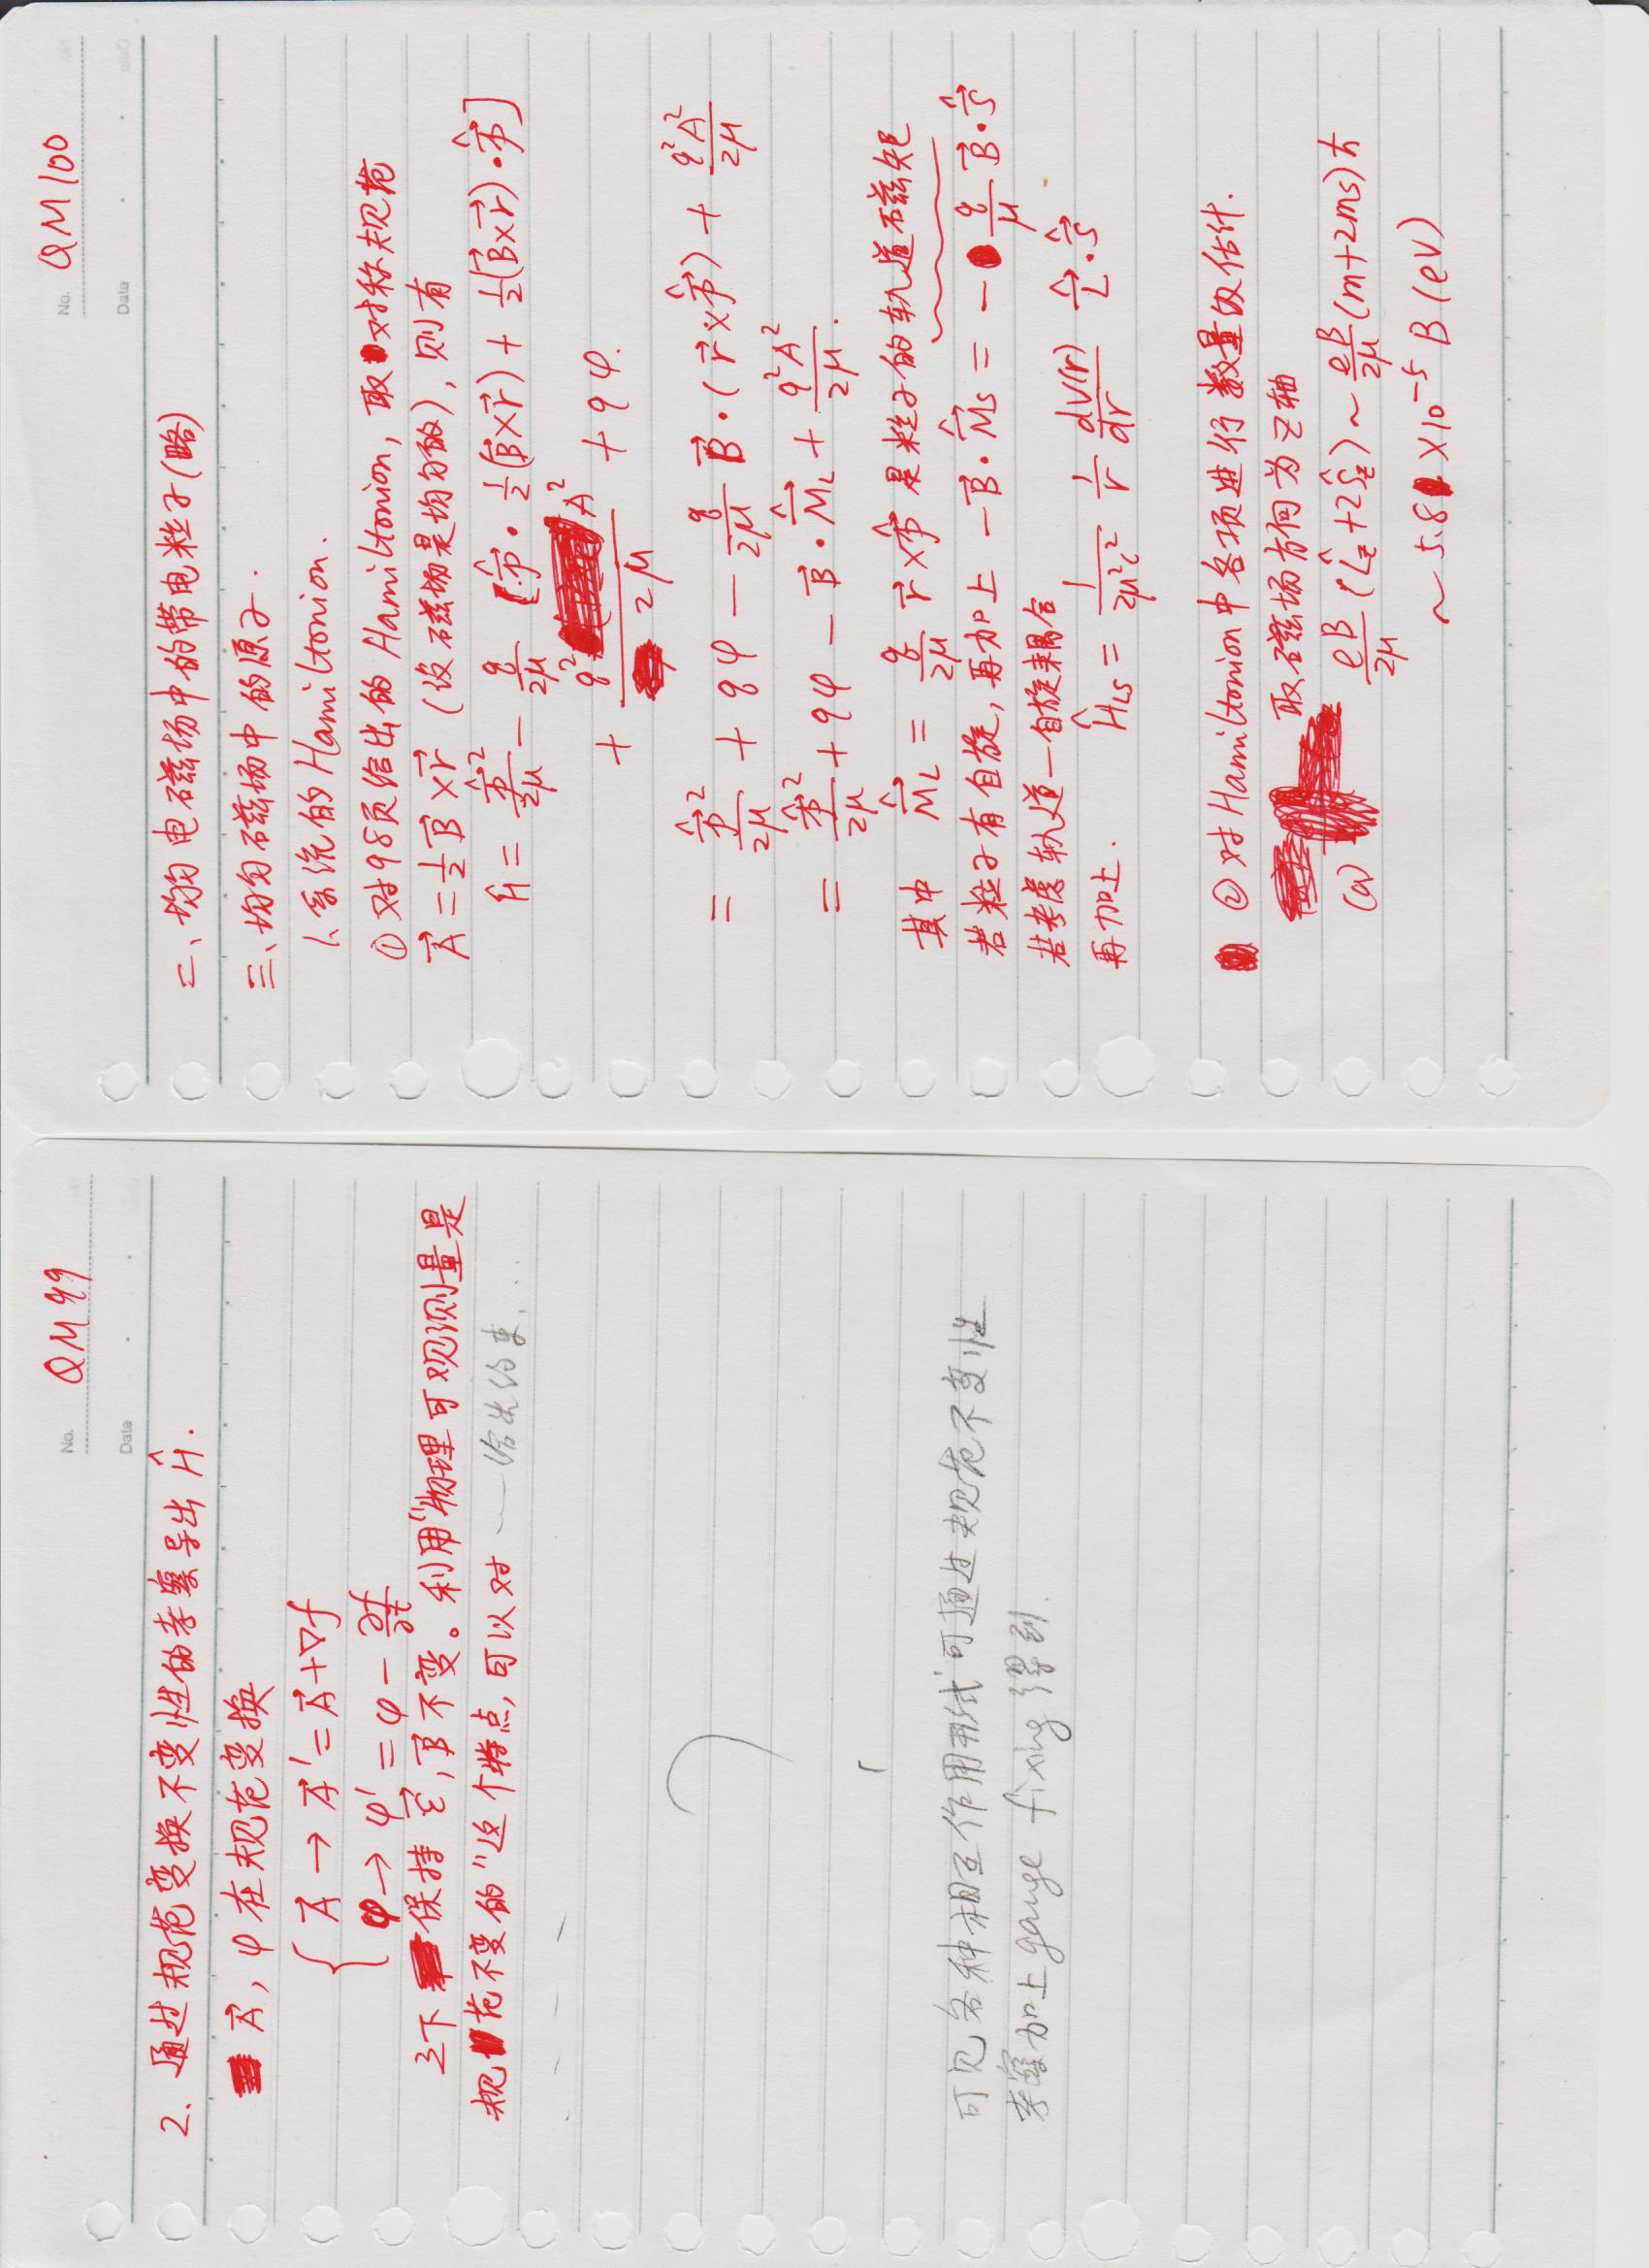 No. QM 99
Data
2. 通过规范变换不变性的考察导出 Ĥ.
A⃗, φ在规范变换
{ A⃗ → A⃗' = A⃗ + ∇f
φ → φ' = φ - ∂f/∂t
之下 保持 ε⃗, B⃗ 不变。利用“物理可观测量是
规范不变的”这个特点, 可以对 —— 给出约束...
可见各种相互作用形式可通过规范不变性
考察加上 gauge fixing 得到.
No. QM 100
Data
二、均匀电磁场中的带电粒子(略)
三、均匀磁场中的原子.
1.系统的 Hamiltonion.
① 对98页给出的 Hamiltonion, 取对称规范
A⃗ = ½ B⃗ × r⃗ (设磁场是均匀的), 则有
Ĥ = p̂⃗²/2μ - q/2μ [p̂⃗ · ½(B⃗×r⃗) + ½(B⃗×r⃗) · p̂⃗]
+ q²A²/2μ + qφ.
= p̂⃗²/2μ + qφ - q/2μ B⃗ · (r⃗×p̂⃗) + q²A²/2μ
= p̂⃗²/2μ + qφ - B⃗ · M̂⃗_L + q²A²/2μ.
其中 M̂⃗_L = q/2μ r⃗×p̂⃗ 是粒子的轨道磁矩
若粒子有自旋, 再加上 -B⃗ · M̂⃗s = - q/μ B⃗ · Ŝ⃗
若考虑轨道—自旋耦合
再加上. Ĥ_LS = 1/2μ²c² 1/r dV(r)/dr L̂⃗ · Ŝ⃗
② 对Hamiltonion中各项进行数量级估计.
取磁场方向为z轴
(a) eB/2μ (L̂_z + 2Ŝ_z) ~ eB/2μ (m+2ms)ħ
~ 5.8 × 10⁻⁵ B (eV)